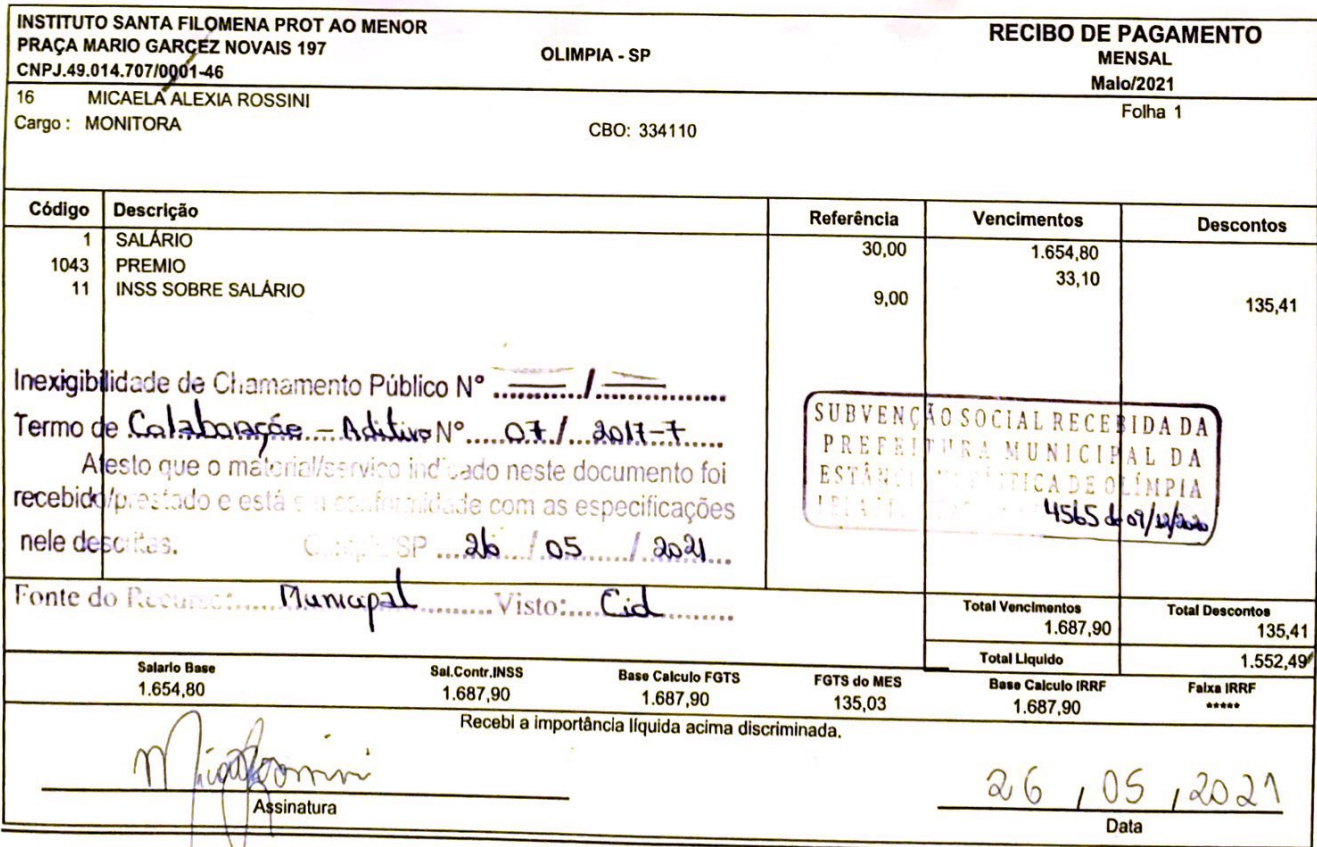 INSTITUTO SANTA FILOMENA PROT AO MENOR
PRAÇA MARIO GARCEZ NOVAIS 197
CNPJ.49.014.707/0001-46
OLIMPIA - SP
RECIBO DE PAGAMENTO
MENSAL
Maio/2021
16 MICAELA ALEXIA ROSSINI
Folha 1
Cargo : MONITORA
CBO: 334110
Código Descrição Referência Vencimentos Descontos
1 SALÁRIO 30,00 1.654,80
1043 PREMIO 33,10
11 INSS SOBRE SALÁRIO 9,00 135,41
Inexigibilidade de Chamamento Público Nº ........../..............
Termo de Colaboração - Aditivo Nº.....07./...2017-7.....
Atesto que o material/serviço indicado neste documento foi
recebido/prestado e está em conformidade com as especificações
nele descritas. SP ...26.../.05....../..2021...
SUBVENÇÃO SOCIAL RECEBIDA DA
PREFEITURA MUNICIPAL DA
ESTÂNCIA TURÍSTICA DE OLÍMPIA
4565 de 09/12/2020
Fonte do Recurso:......Municipal.........Visto:....Cid.........
Total Vencimentos Total Descontos
1.687,90 135,41
Total Liquido 1.552,49
Salario Base Sal.Contr.INSS Base Calculo FGTS FGTS do MES Base Calculo IRRF Faixa IRRF
1.654,80 1.687,90 1.687,90 135,03 1.687,90 *****
Recebi a importância líquida acima discriminada.
26 , 05 , 2021
Assinatura
Data